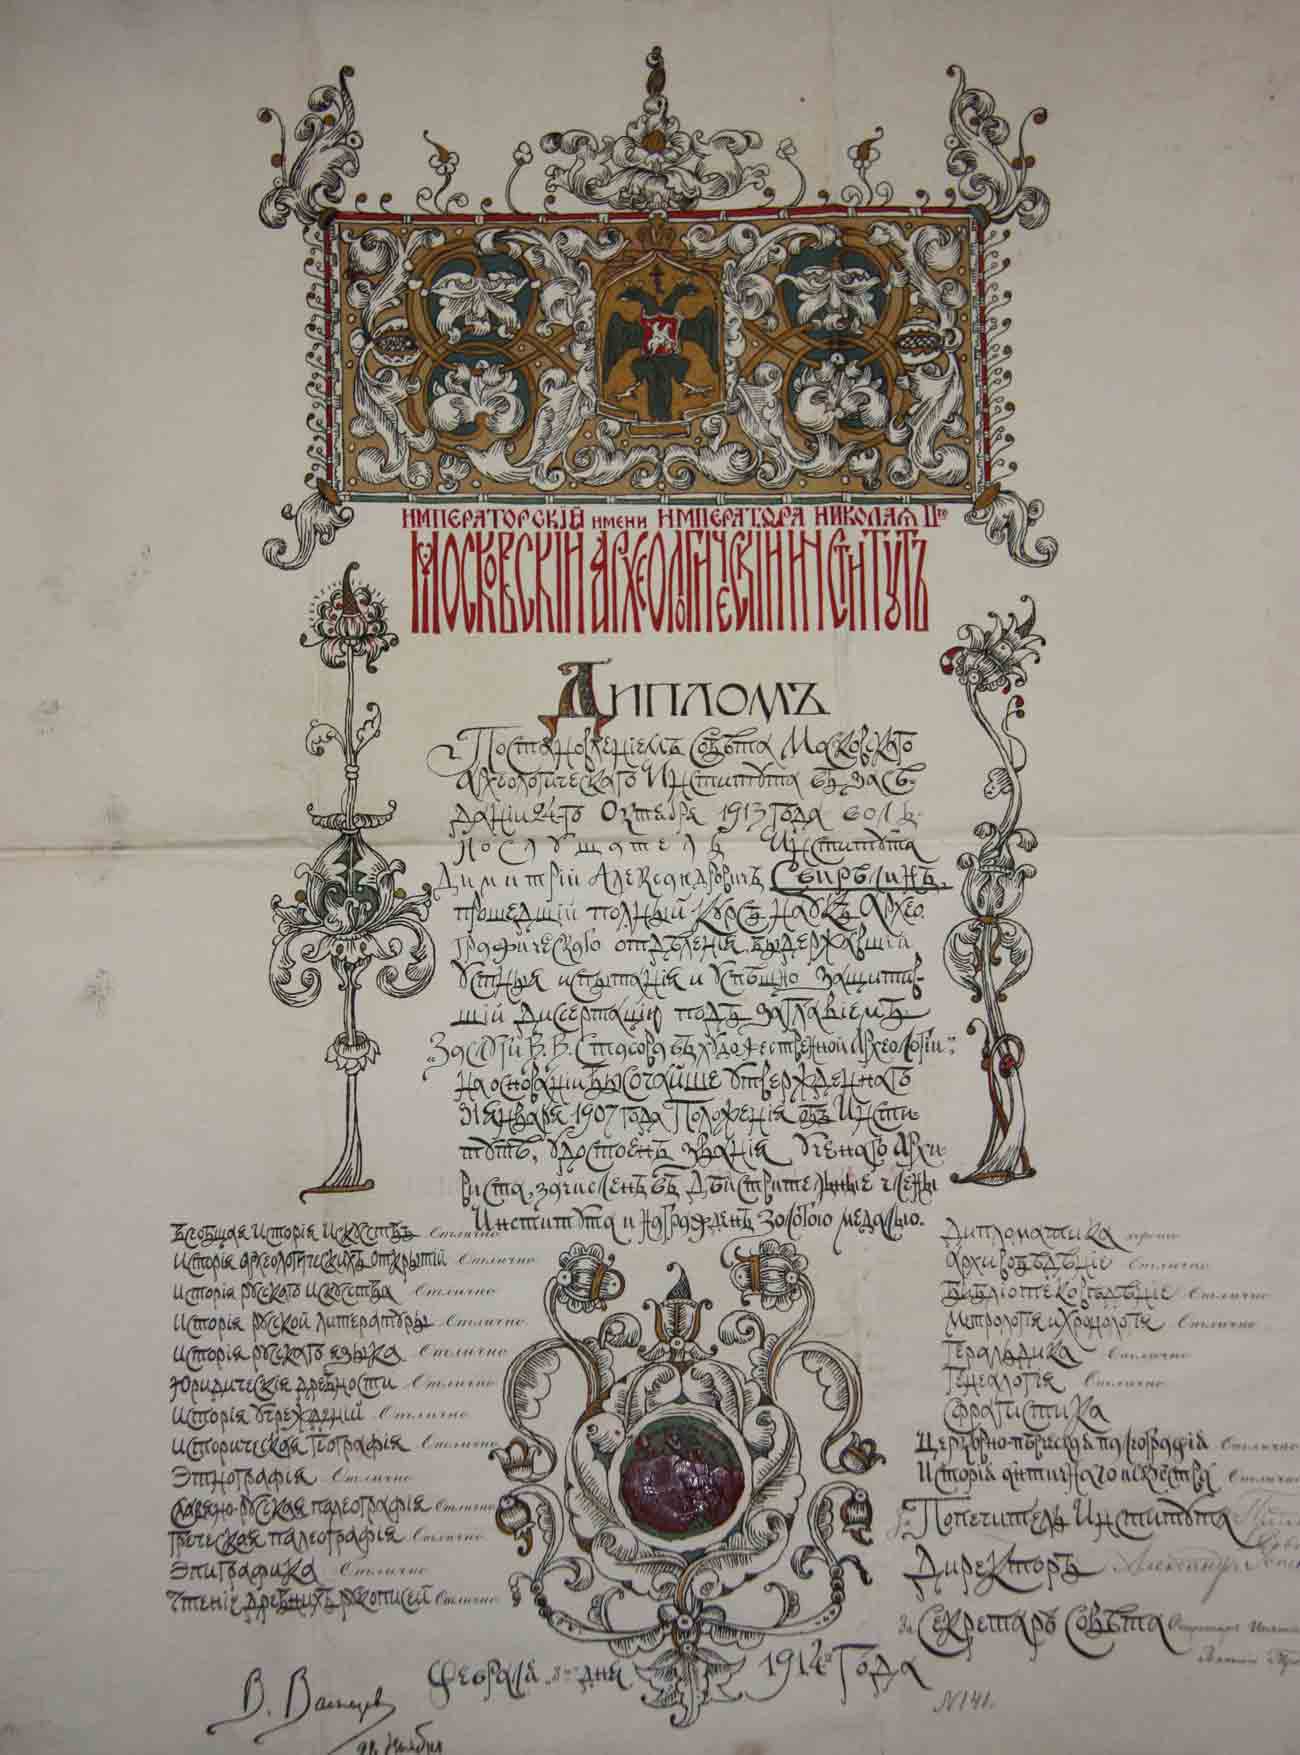 ИМПЕРАТОРСКІЙ ИМЕНИ ИМПЕРАТѠРА НИКОЛАѦ IIго
МОСКОВСКІЙ АРХЕОЛОГИЧЕСКІЙ ИНСТИТУТЪ
ДИПЛОМЪ
Постановленіемъ Совѣта Московскаго
Археологическаго Института въ засѣ-
даніи 24-го Октября 1913 года воль-
нослушатель Института
Димитрій Александровичъ Свирѣлинъ,
прошедшій полный курсъ наукъ Архео-
графическаго отдѣленія, выдержавшій
устныя испытанія и успѣшно защитив-
шій диссертацію подъ заглавіемъ
„Заслуги В. В. Стасова въ художественной Археологіи",
на основаніи Высочайше утвержденнаго
31 Января 1907 года Положенія объ Инсти-
тутѣ, удостоенъ званія Ученаго Архи-
виста, зачисленъ въ Дѣйствительные члены
Института и награжденъ золотою медалью.
Всеобщая Исторія Искусствъ Отлично
Исторія археологическихъ открытій Отлично
Исторія русскаго искусства Отлично
Исторія русской литературы Отлично
Исторія русскаго языка Отлично
Юридическія древности Отлично
Исторія учрежденій Отлично
Историческая географія Отлично
Этнографія Отлично
Славяно-русская палеографія Отлично
Греческая палеографія Отлично
Эпиграфика Отлично
Чтеніе древнихъ рукописей Отлично
Дипломатика хорошо
Архивовѣдѣніе Отлично
Библіотековѣдѣніе Отлично
Метрологія и Хронологія Отлично
Геральдика Отлично
Генеалогія Отлично
Сфрагистика
Исторія античнаго искусства Отлично
За Попечитель Института
Директоръ Александръ
За Секретарь Совѣта
Февраля „8го" дня 1914го Года
№ 141.
В. Васнецов